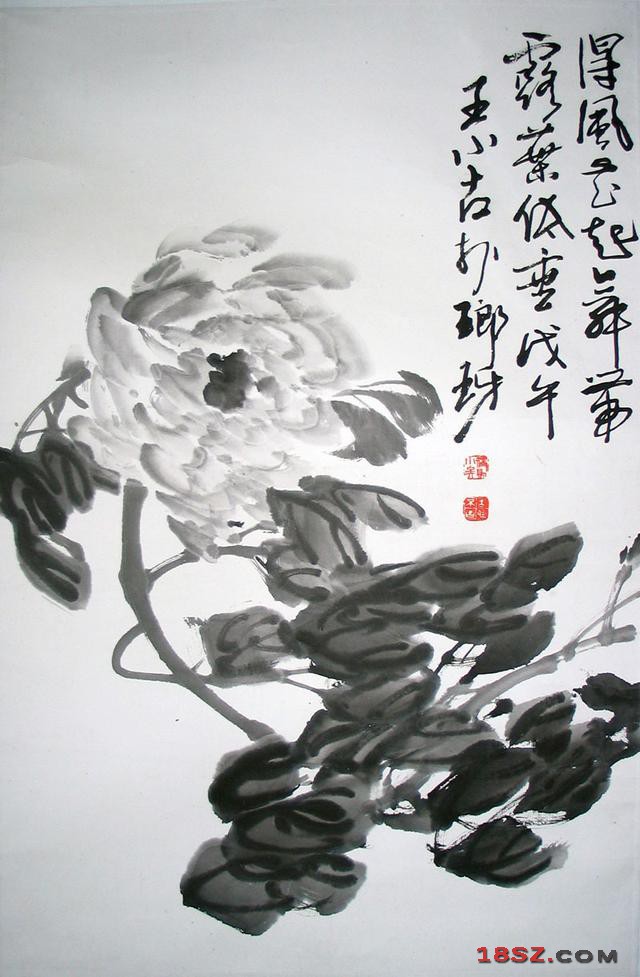 得風花起舞帶
露葉低垂戊午
王小古於瑯玡
18SZ.COM